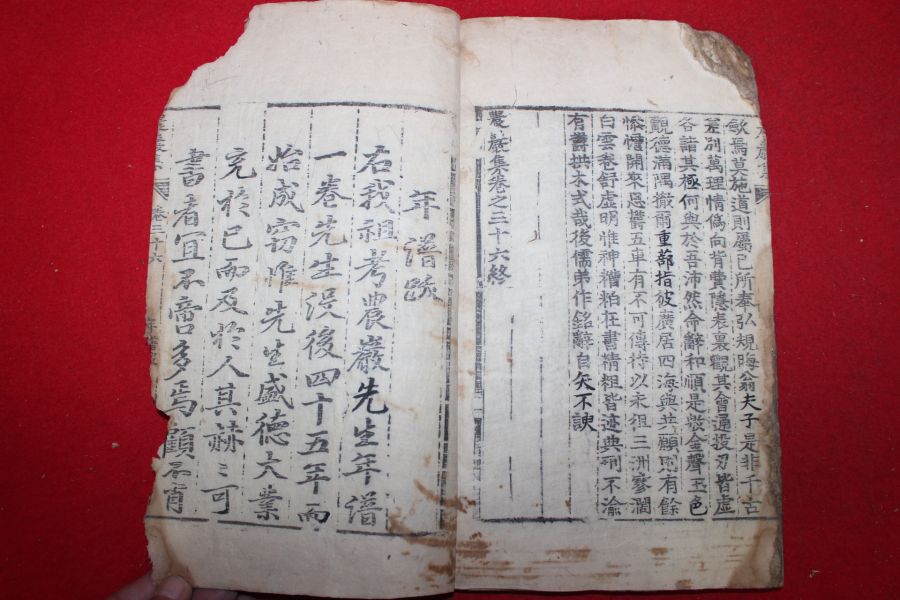 歛焉莫施道則屬已所奏弘規晦翁夫子是非千古
差別萬理情僞向背費隱表裏觀其會通投刃皆虛
各詣其極何與於吾沛然命辭和順是殽金聲玉色
觀德滿隅撤爾重蔀指彼廣居四海與共顧則有餘
慘懼開聚惡鬱五車有不可傳待以永祖三洲寥濶
白雲卷舒虛明惟神糟粕在書精粗皆迹典刑不渝
有鬱拱木式哉後儒弟作銘辭自矢不諛
農巖集卷之三十六終
年譜跋
右我祖考農巖先生年譜
一卷先生沒後四十五年而
始成竊惟先生盛德大業
充於已而及於人其赫〻可
書者宜不啻多焉顧不肖
卷三十六